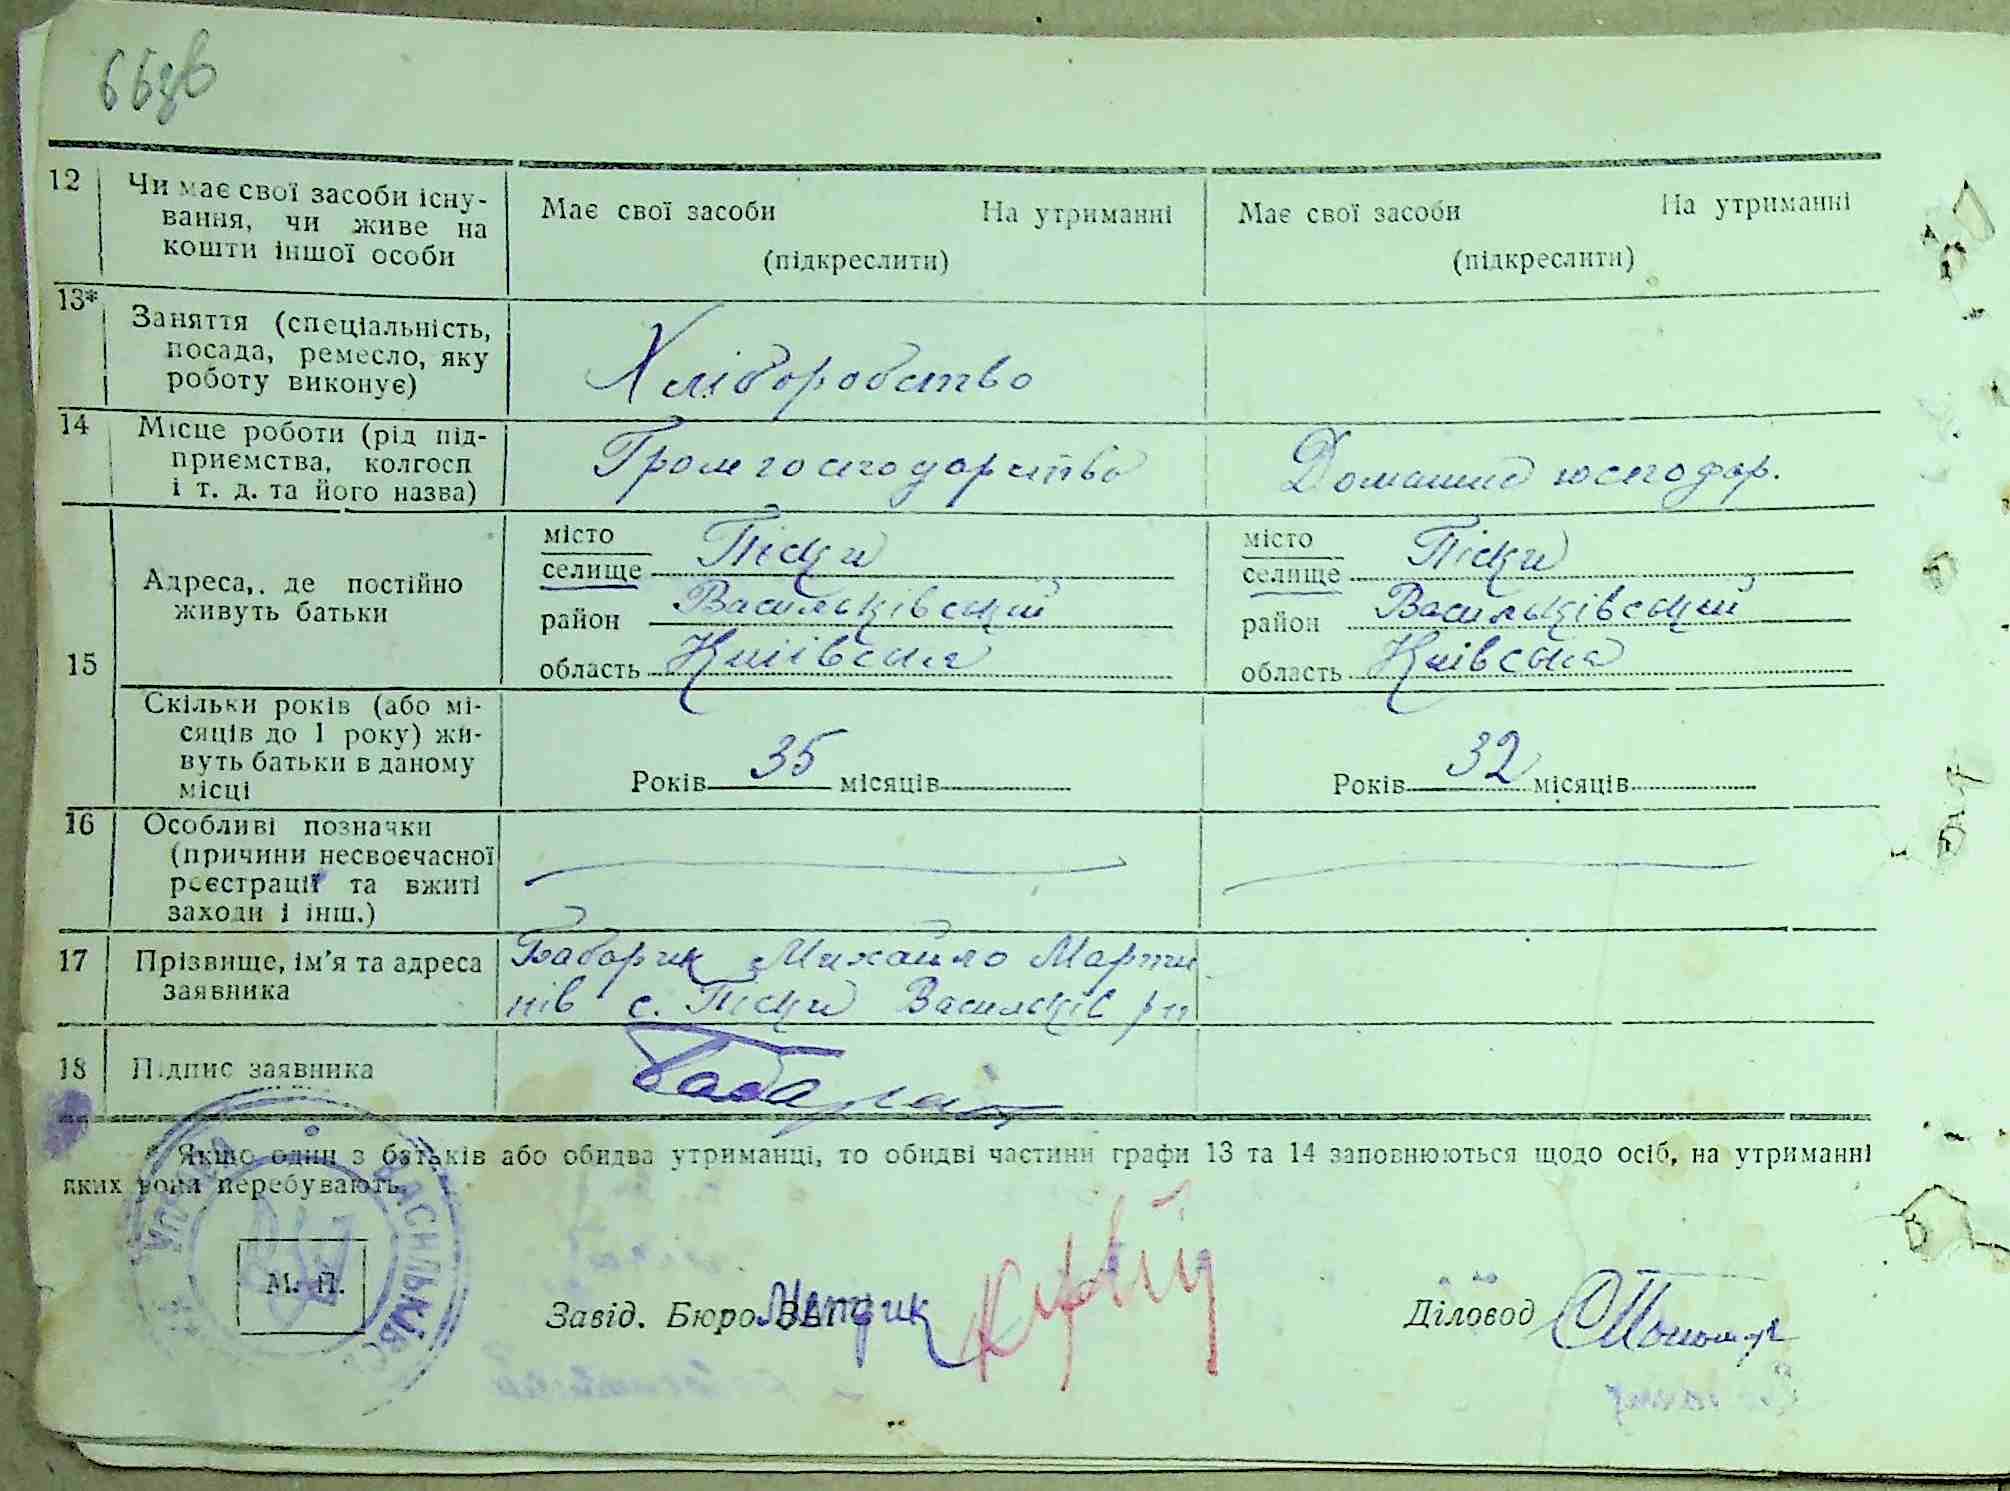 66зв
12 Чи має свої засоби існу- Має свої засоби На утриманні Має свої засоби На утриманні
вання, чи живе на
кошти іншої особи (підкреслити) (підкреслити)
13* Заняття (спеціальність,
посада, ремесло, яку Хліборобство
роботу виконує)
14 Місце роботи (рід під-
приємства, колгосп Громгосподарство Домашнє господар.
і т. д. та його назва)
15 Адреса, де постійно
живуть батьки
місто Піски місто Піски
селище селище
район Васильківский район Васильківский
область Київська область Київська
Скільки років (або мі-
сяців до 1 року) жи-
вуть батьки в даному
місці
Років 35 місяців Років 32 місяців
16 Особливі позначки
(причини несвоєчасної
реєстрації та вжиті
заходи і інш.)
17 Прізвище, ім'я та адреса Бабарик Михайло Марти
заявника нів с. Піски Васильків р-н
18 Підпис заявника
* Якщо один з батьків або обидва утриманці, то обидві частини графи 13 та 14 заповнюються щодо осіб, на утриманні
яких вони перебувають.
УПРАВА ВАСИЛЬКІВС
М. П.
Завід. Бюро ЗАГС Діловод